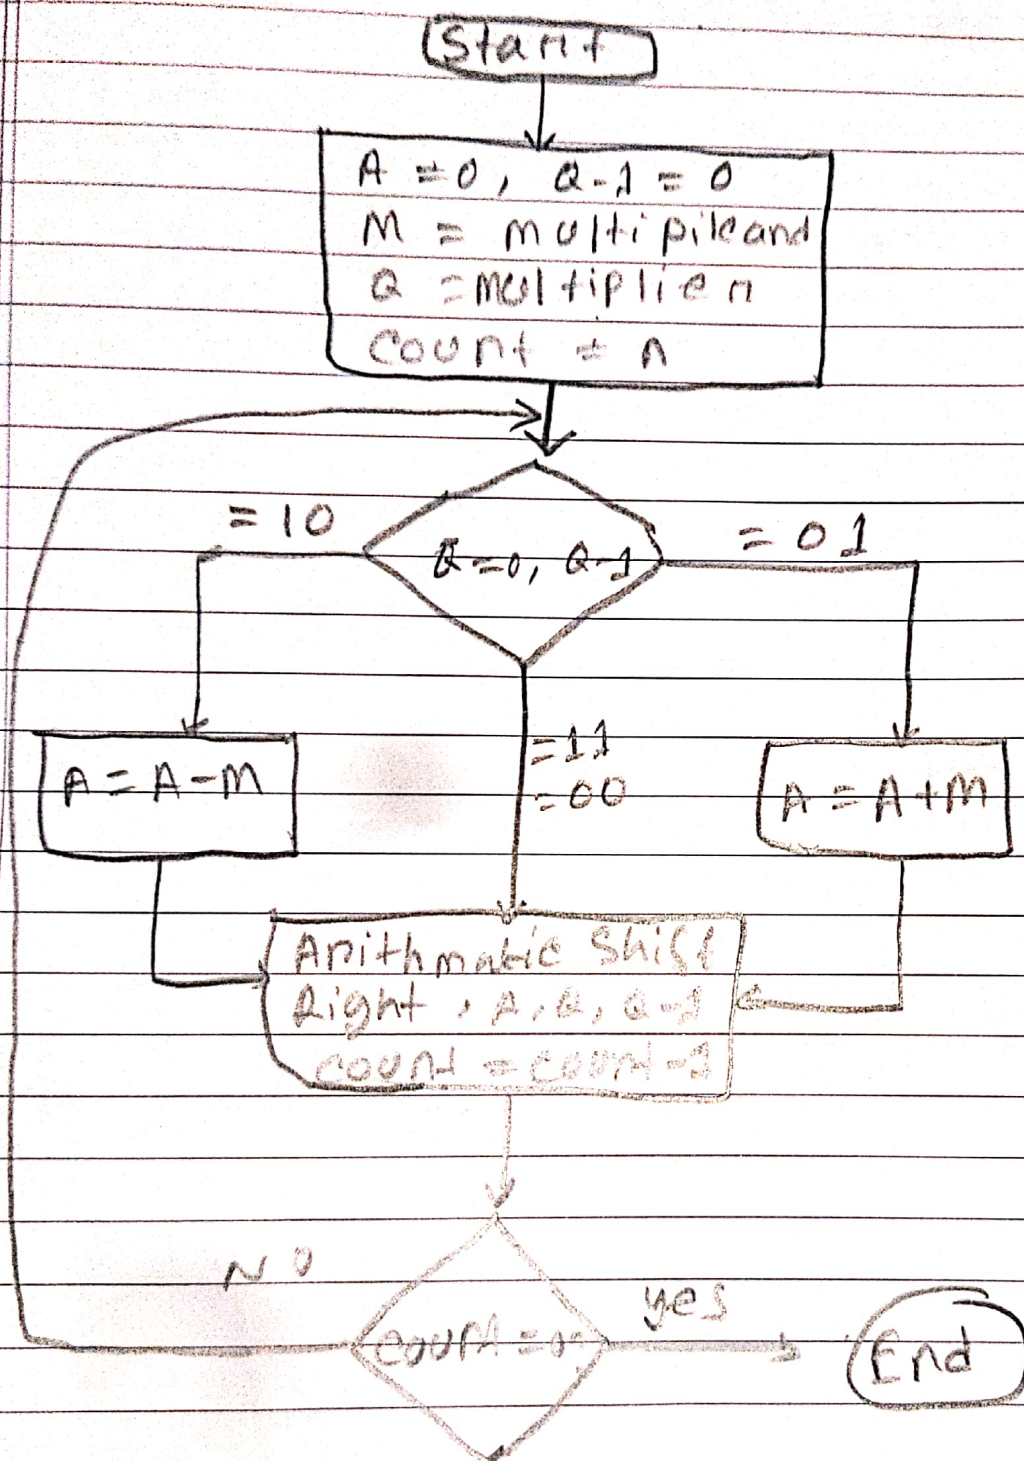 Start
A = 0, Q-1 = 0
M = multipileand
Q = multiplier
count = n
= 10
Q=0, Q-1
= 01
A = A-M
=11
=00
A = A+M
Arithmatic Shift
Right, A, Q, Q-1
count = count-1
NO
count = 0?
yes
End